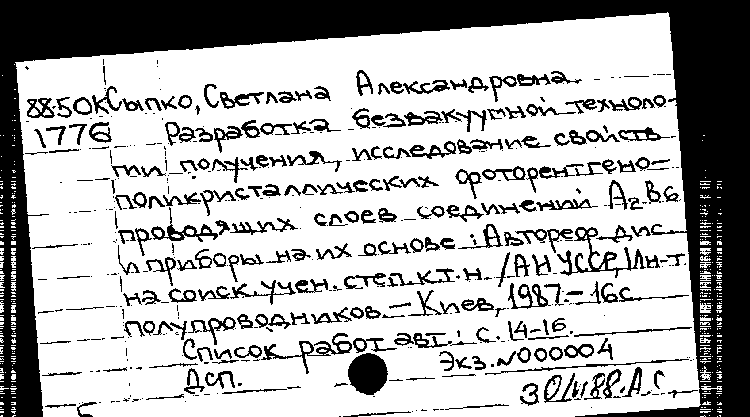 88.50К Сыпко, Светлана Александровна.
1776 Разработка безвакуумной техноло-
гии получения, исследование свойств
поликристаллических фоторентгено-
проводящих слоев соединений А2В6
и приборы на их основе : Автореф. дис.
на соиск. учен. степ. к.т.н. / АН УССР, Ин-т
полупроводников. – Киев, 1987. – 16 с.
Список работ авт. : с. 14-16.
ДСП. Экз. №000004